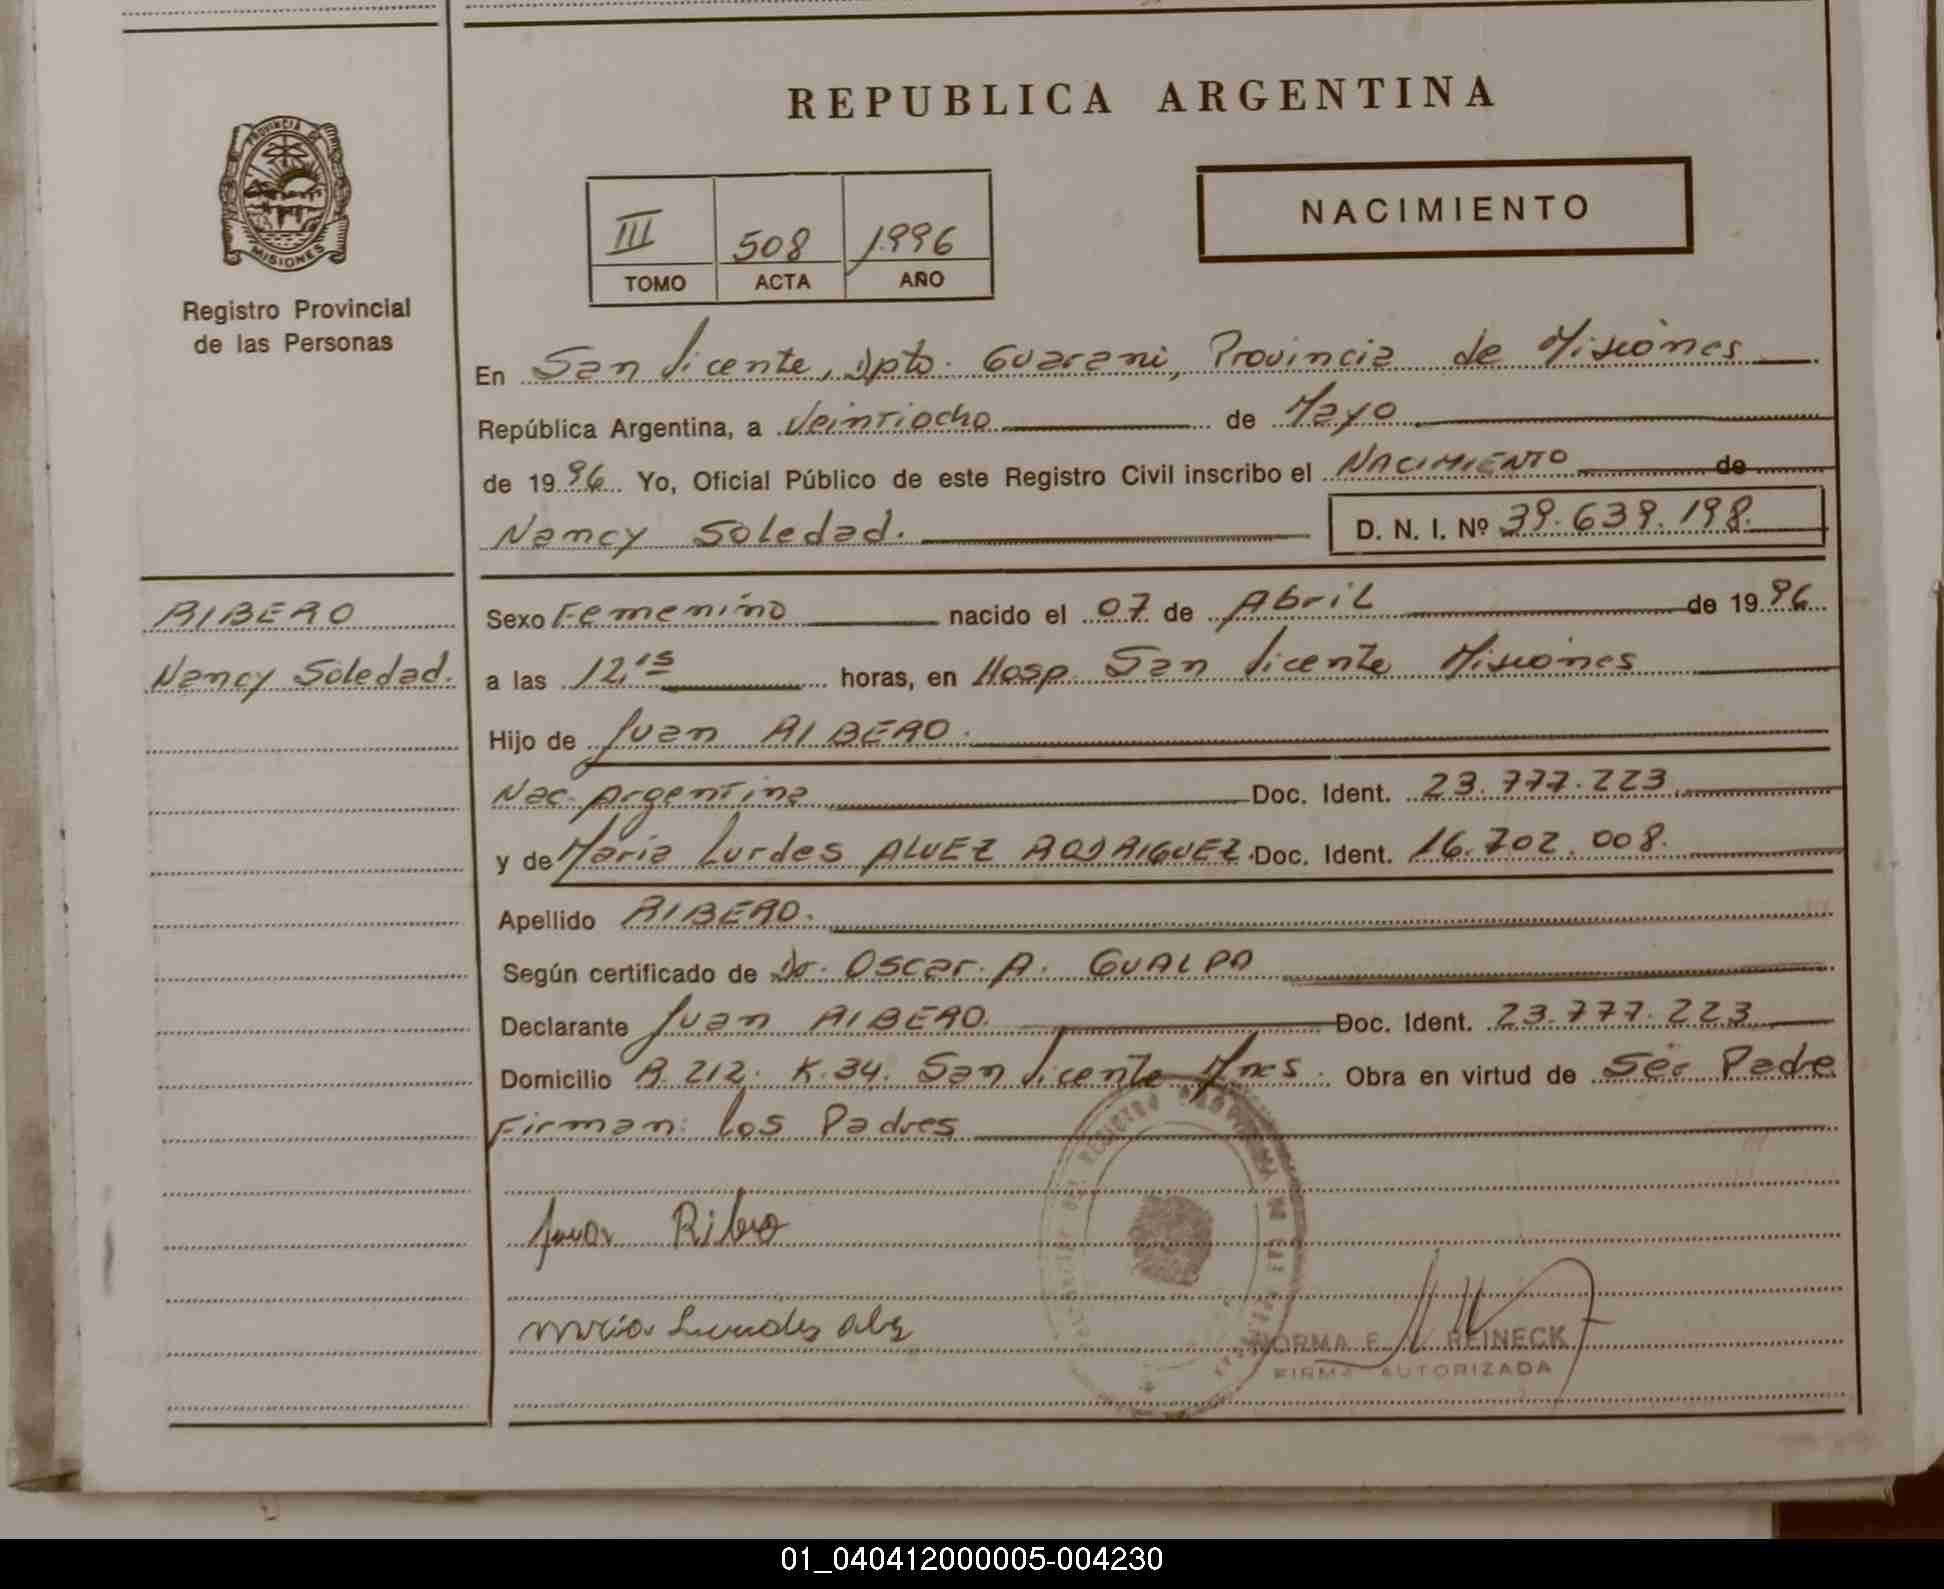 REPUBLICA ARGENTINA
PROVINCIA DE
MISIONES
Registro Provincial
de las Personas
NACIMIENTO
III 508 1996
TOMO ACTA AÑO
En San Vicente, Dpto. Guarani, Provincia de Misiones
República Argentina, a Veintiocho de Mayo
de 1996 Yo, Oficial Público de este Registro Civil inscribo el NACIMIENTO de
Nancy Soledad. D. N. I. Nº 39.639.198.
RIBERO
Nancy Soledad.
Sexo Femenino nacido el 07 de Abril de 1996
a las 12,15 horas, en Hosp. San Vicente Misiones
Hijo de Juan RIBERO.
Nac. Argentina Doc. Ident. 23.777.223
y de Maria Lurdes ALVEZ RODRIGUEZ. Doc. Ident. 16.702.008.
Apellido RIBERO.
Según certificado de Dr. Oscar. A. GUALPA
Declarante Juan RIBERO. Doc. Ident. 23.777.223
Domicilio R. 212. K.34. San Vicente Mnes. Obra en virtud de Ser Padre
Firman: los Padres
Juan Ribero
NORMA E. REINECK
FIRMA AUTORIZADA
01_040412000005-004230